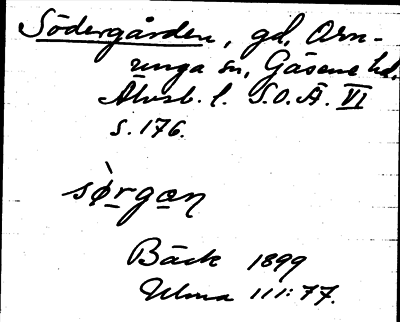 Södergården, gd, Orn-
unga sn, Gäsene hd,
Älvsb. l. S.O.Ä. VI
s. 176.
sø̀rgan
Bäck 1899
Ulma 111:77.